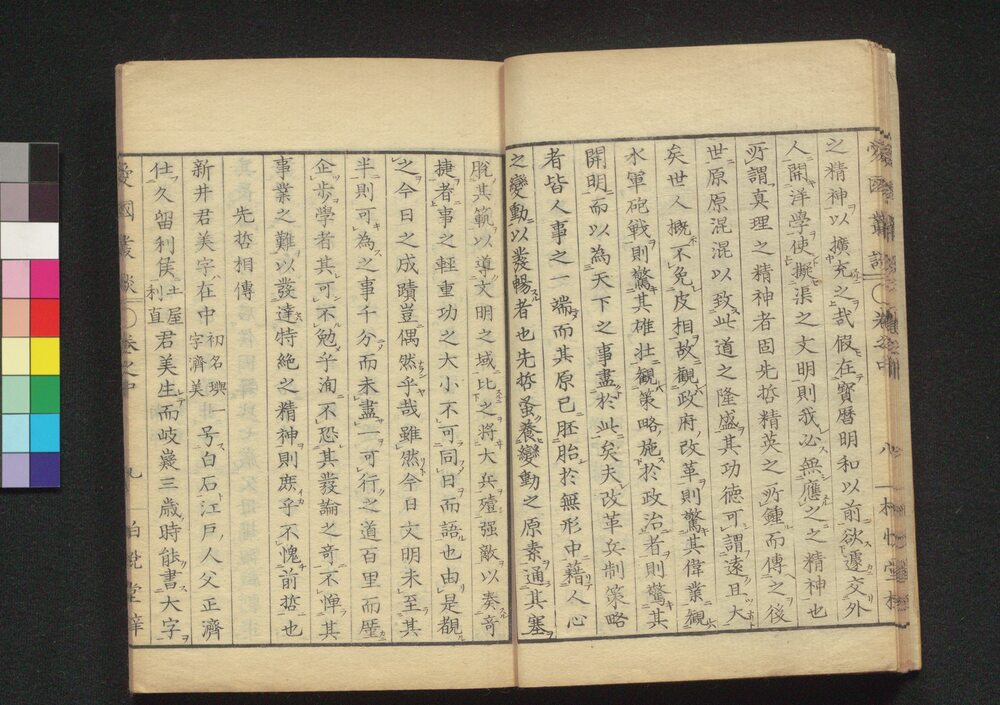 之精神以擴充之哉假在寶曆明和以前欲遽交外
人開洋學使擬渠之文明則我必無應之之精神也
所謂真理之精神者固先哲精英之所鍾而傳之後
世原原混混以致此道之隆盛其功德可謂遠且大
矣世人概不免皮相故觀政府改革則驚其偉業觀
水軍砲戰則驚其雄壯觀策略施於政治者則驚其
開明而以為天下之事盡於此矣夫改革兵制策略
者皆人事之一端而其原已胚胎於無形中藉人心
之變動以發暢者也先哲蚤養變動之原素通其塞
脫其範以導文明之域比之將大兵殪强敵以奏奇
捷者事之輕重功之大小不可同日而語也由是觀
之今日之成蹟豈偶然乎哉雖然今日文明未至其
半則可為之事千分而未盡一可行之道百里而歷
企步學者其可不勉乎洵不恐其發論之奇不憚其
事業之難以發達特絕之精神則庶乎不愧前哲也
先哲相傳
新井君美字在中初名璵一字濟美号白石江戶人父正濟
仕久留利侯土屋利直君美生而岐嶷三歲時能書大字
愛國叢談 〇卷之中 九